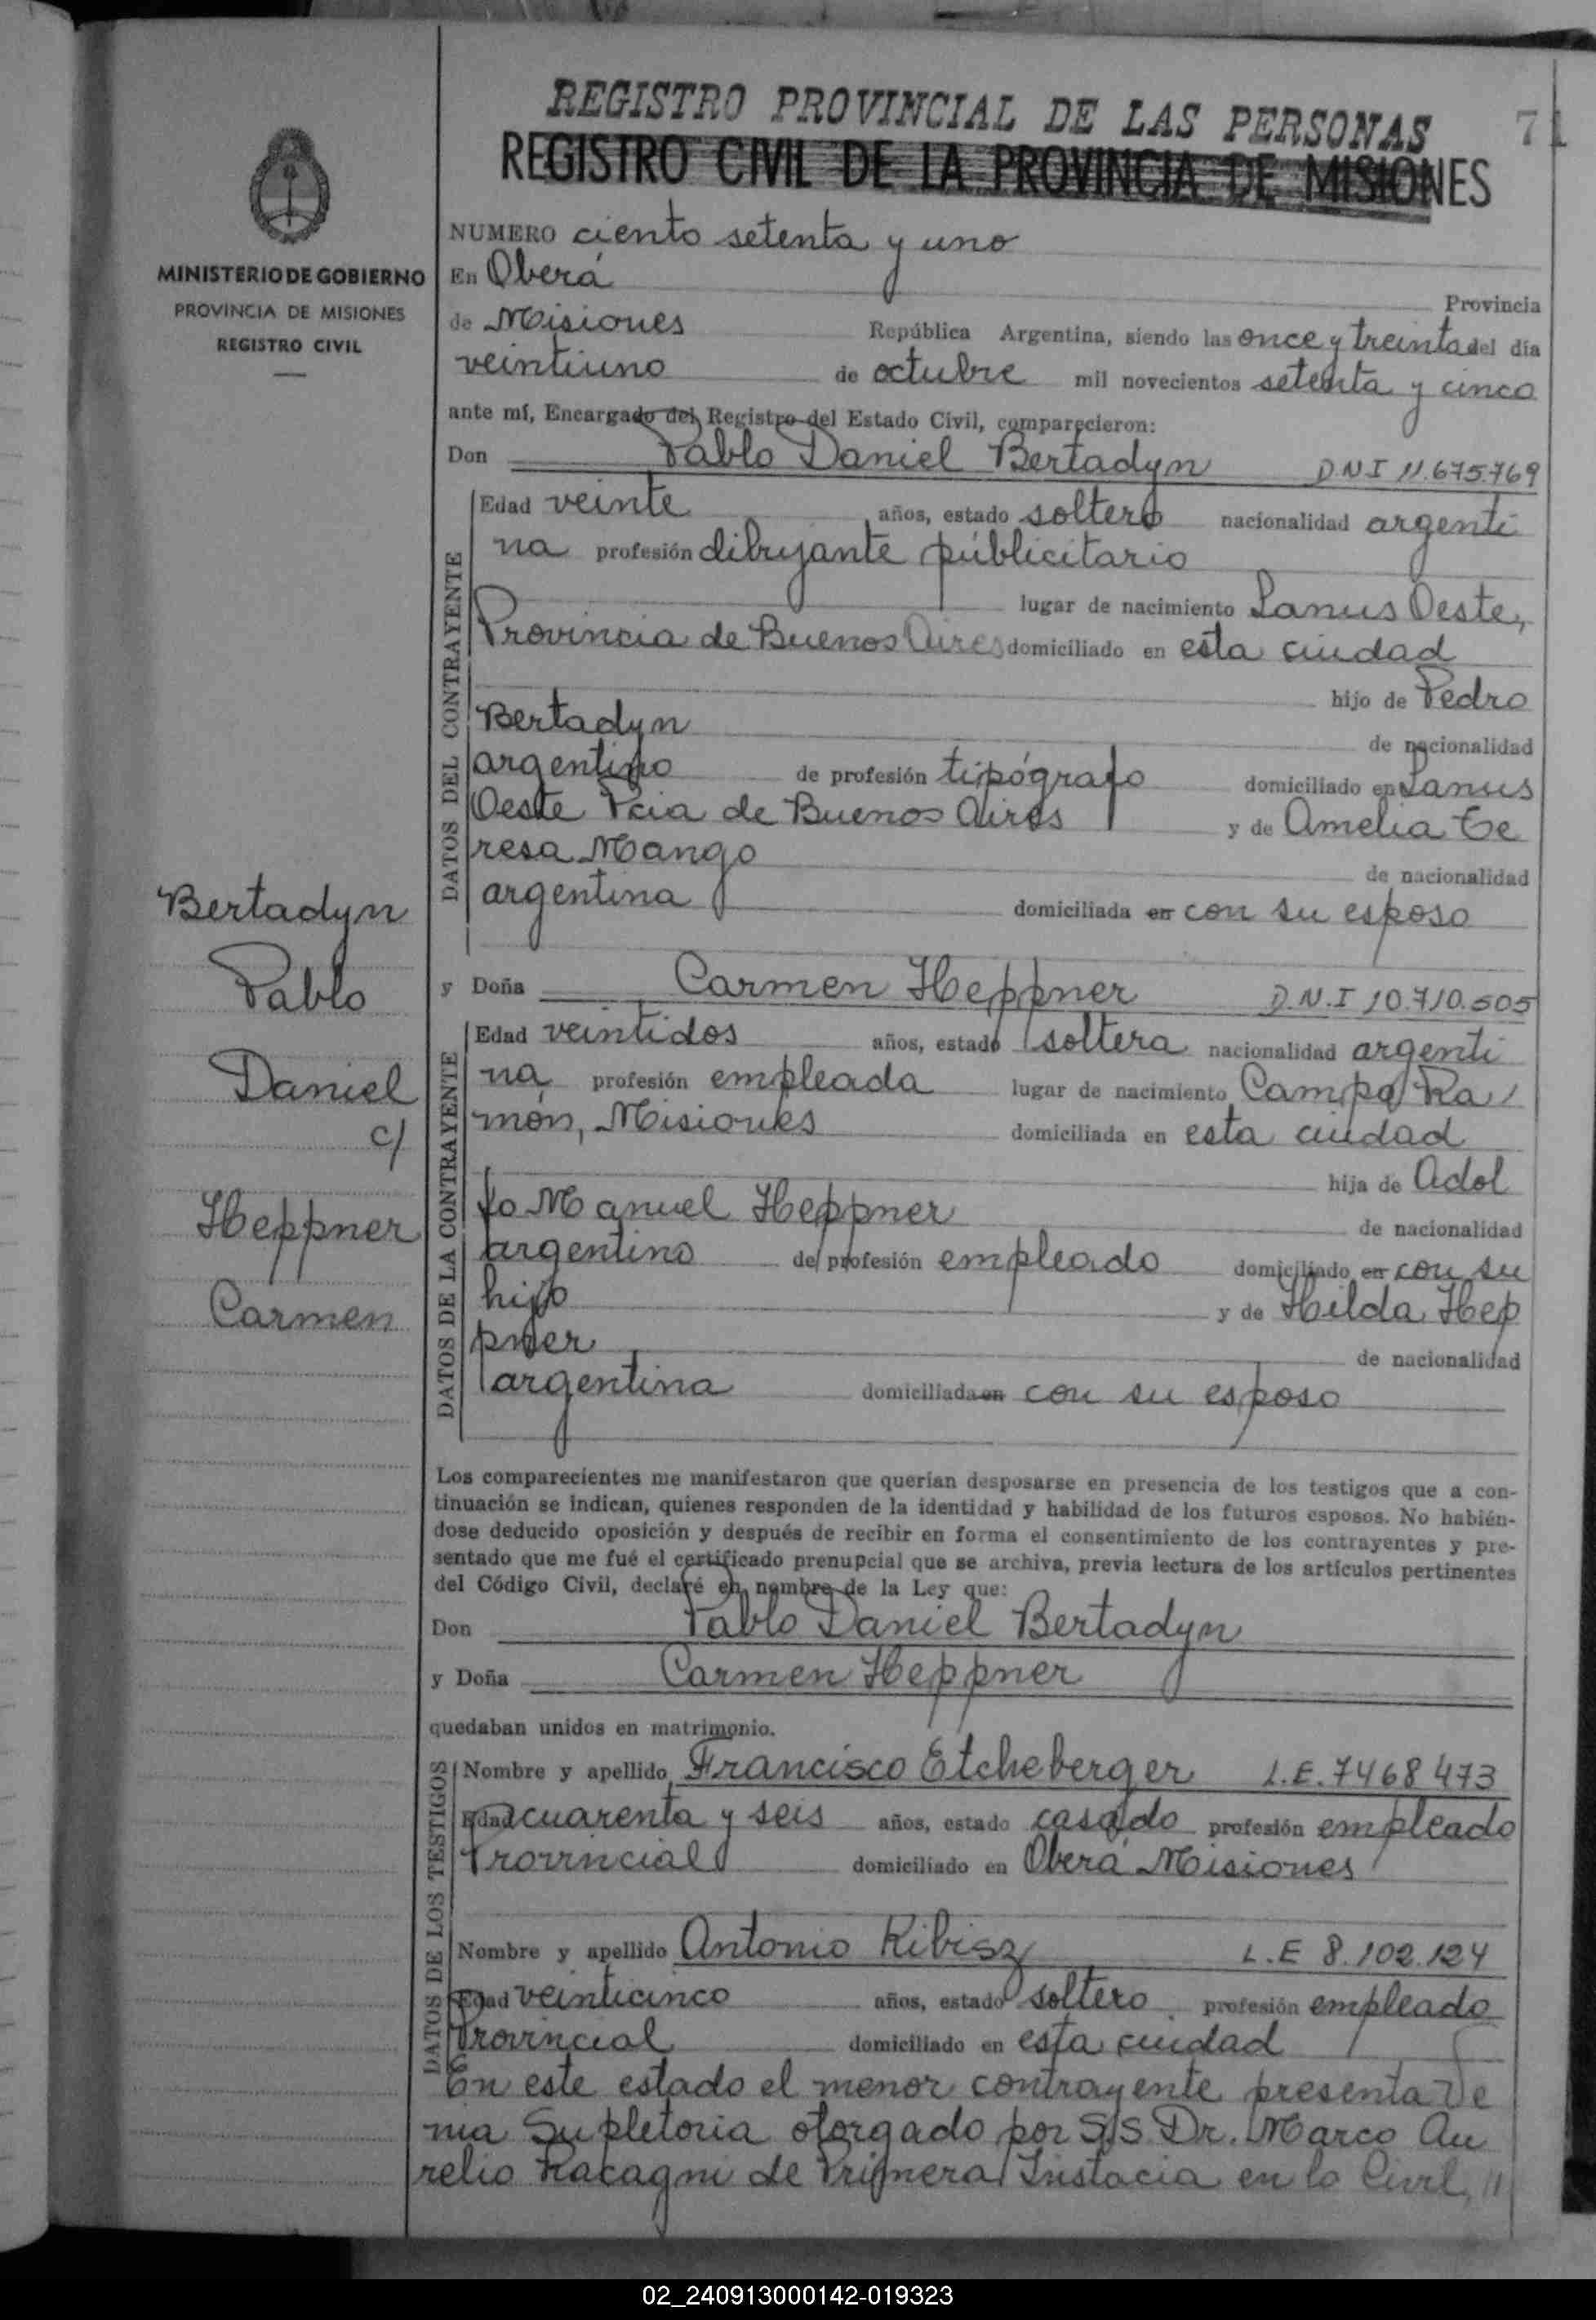 REGISTRO PROVINCIAL DE LAS PERSONAS
71
REGISTRO CIVIL DE LA PROVINCIA DE MISIONES
MINISTERIO DE GOBIERNO
PROVINCIA DE MISIONES
REGISTRO CIVIL
NUMERO ciento setenta y uno
En Oberá Provincia
de Misiones República Argentina, siendo las once y treinta del día
veintiuno de octubre mil novecientos setenta y cinco
ante mí, Encargado del Registro del Estado Civil, comparecieron:
Don Pablo Daniel Bertadyn D.N.I 11.675.769
DATOS DEL CONTRAYENTE
Edad veinte años, estado soltero nacionalidad argenti
na profesión dibujante públicitario
lugar de nacimiento Lanus Oeste,
Provincia de Buenos Aires domiciliado en esta ciudad
hijo de Pedro
Bertadyn de nacionalidad
argentino de profesión tipógrafo domiciliado en Lanus
Oeste Pcia de Buenos Aires y de Amelia Te
resa Mango de nacionalidad
argentina domiciliada en con su esposo
Bertadyn
Pablo
Daniel
c/
Heppner
Carmen
y Doña Carmen Heppner D.N.I 10.710.505
DATOS DE LA CONTRAYENTE
Edad veintidos años, estado soltera nacionalidad argenti
na profesión empleada lugar de nacimiento Campo Ra/
món, Misiones domiciliada en esta ciudad
hija de Adol
fo Manuel Heppner de nacionalidad
argentino de profesión empleado domiciliado en con su
hijo y de Hilda Hep
pner de nacionalidad
argentina domiciliada en con su esposo
Los comparecientes me manifestaron que querían desposarse en presencia de los testigos que a con-
tinuación se indican, quienes responden de la identidad y habilidad de los futuros esposos. No habién-
dose deducido oposición y después de recibir en forma el consentimiento de los contrayentes y pre-
sentado que me fué el certificado prenupcial que se archiva, previa lectura de los artículos pertinentes
del Código Civil, declaré en nombre de la Ley que:
Don Pablo Daniel Bertadyn
y Doña Carmen Heppner
quedaban unidos en matrimonio.
DATOS DE LOS TESTIGOS
Nombre y apellido Francisco Etcheberger L.E. 7468473
Edad cuarenta y seis años, estado casado profesión empleado
Provincial domiciliado en Oberá Misiones
Nombre y apellido Antonio Ribisz L.E 8.102.124
Edad veinticinco años, estado soltero profesión empleado
Provincial domiciliado en esta ciudad
En este estado el menor contrayente presenta Ve
nia Supletoria otorgado por S.S. Dr. Marco Au
relio Racagni de Primera Instacia en lo Civil, //
02_240913000142-019323